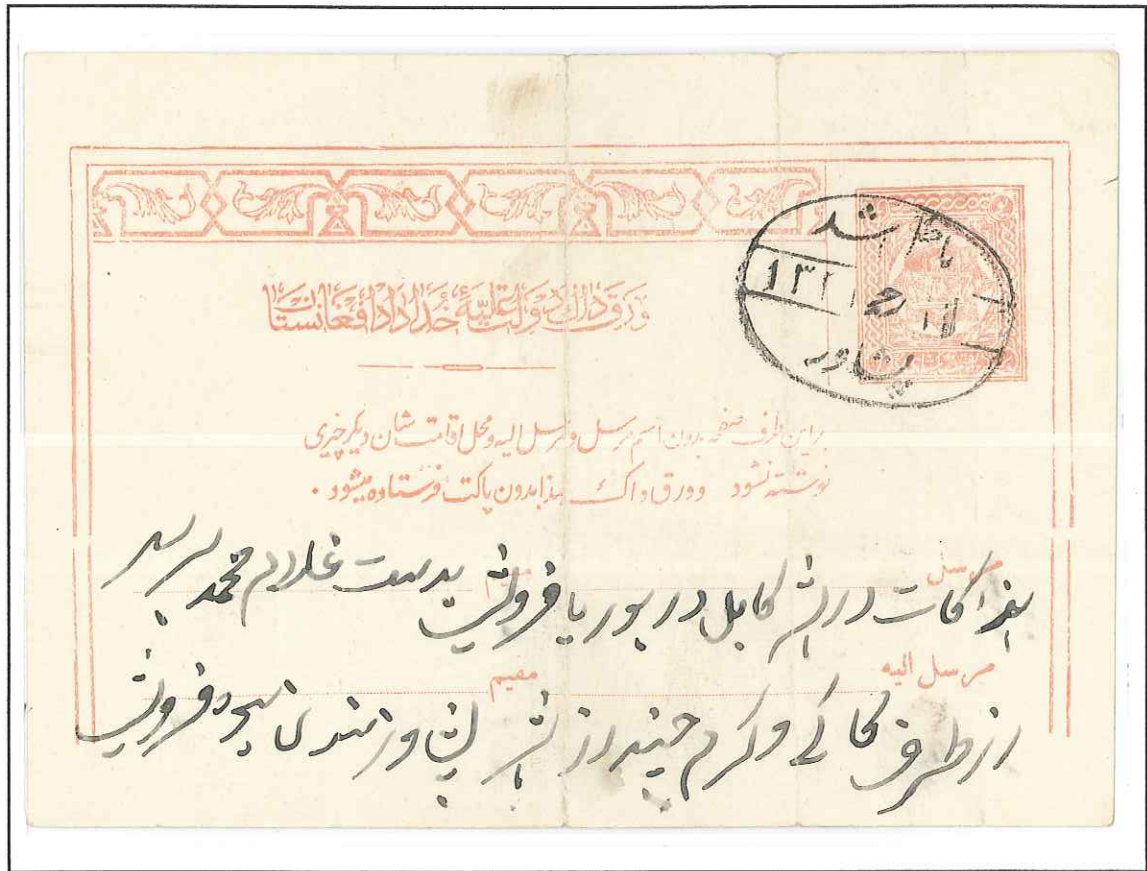 باطل شد
۱۳۲
پشاور
ورق داک دولت علیّهٔ خداداد افغانستان
براین طرف صفحه بدون اسم مرسل و مرسل الیه و محل اقامت شان دیگر چیزی
نوشته نشود و ورق داک هذا بدون پاکت فرستاده میشود ۰
مرسل مقیم
در شهر کابل در بوریا فروشی بدست غلام محمد برسد
مرسل الیه مقیم
از طرف و کرم چند از شهر پشاور مندی میوه فروشی